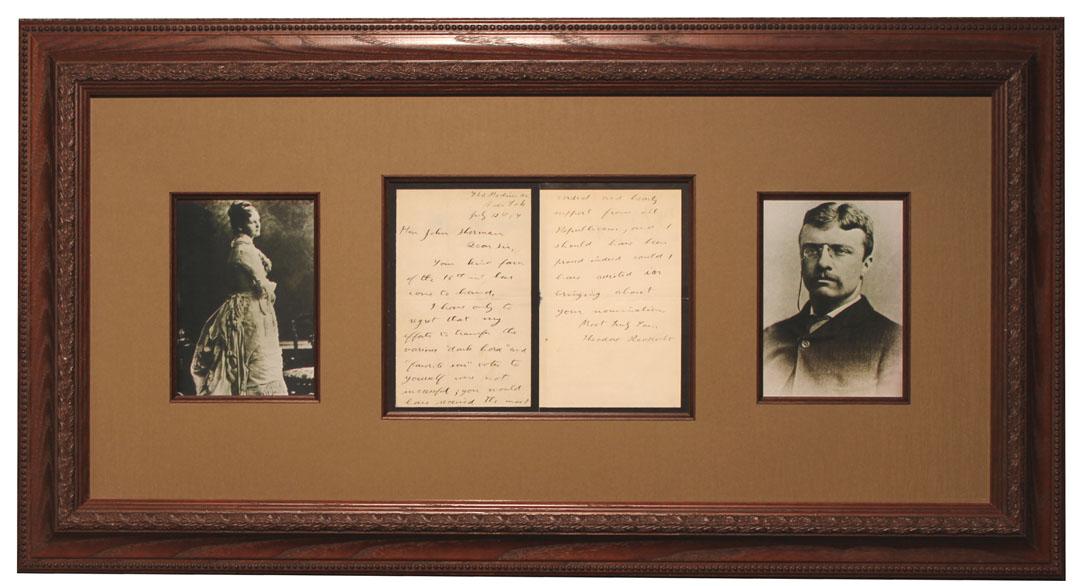 New York
July 12th 84
Hon John Sherman
Dear Sir,
Your kind favor
of the 10th inst has
come to hand.
I have only to
regret that my
efforts to transfer the
various "dark horse" and
"favorite son" votes to
yourself were not
successful; you would
have received the most
cordial and hearty
support from all
Republicans, and I
should have been
proud indeed could I
have assisted in
bringing about
your nomination
Most Truly Yours,
Theodore Roosevelt